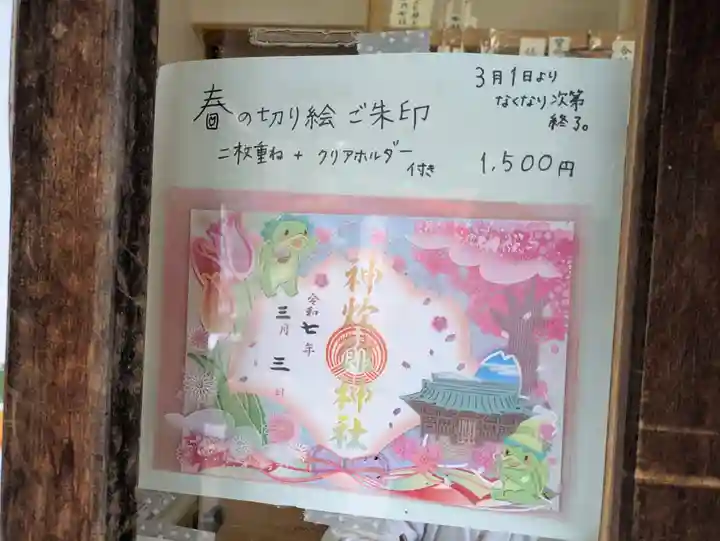 春の切り絵ご朱印
二枚重ね + クリアホルダー付き
3月1日より
なくなり次第
終了。
1,500円
神炊館神社
令和七年
三月三日